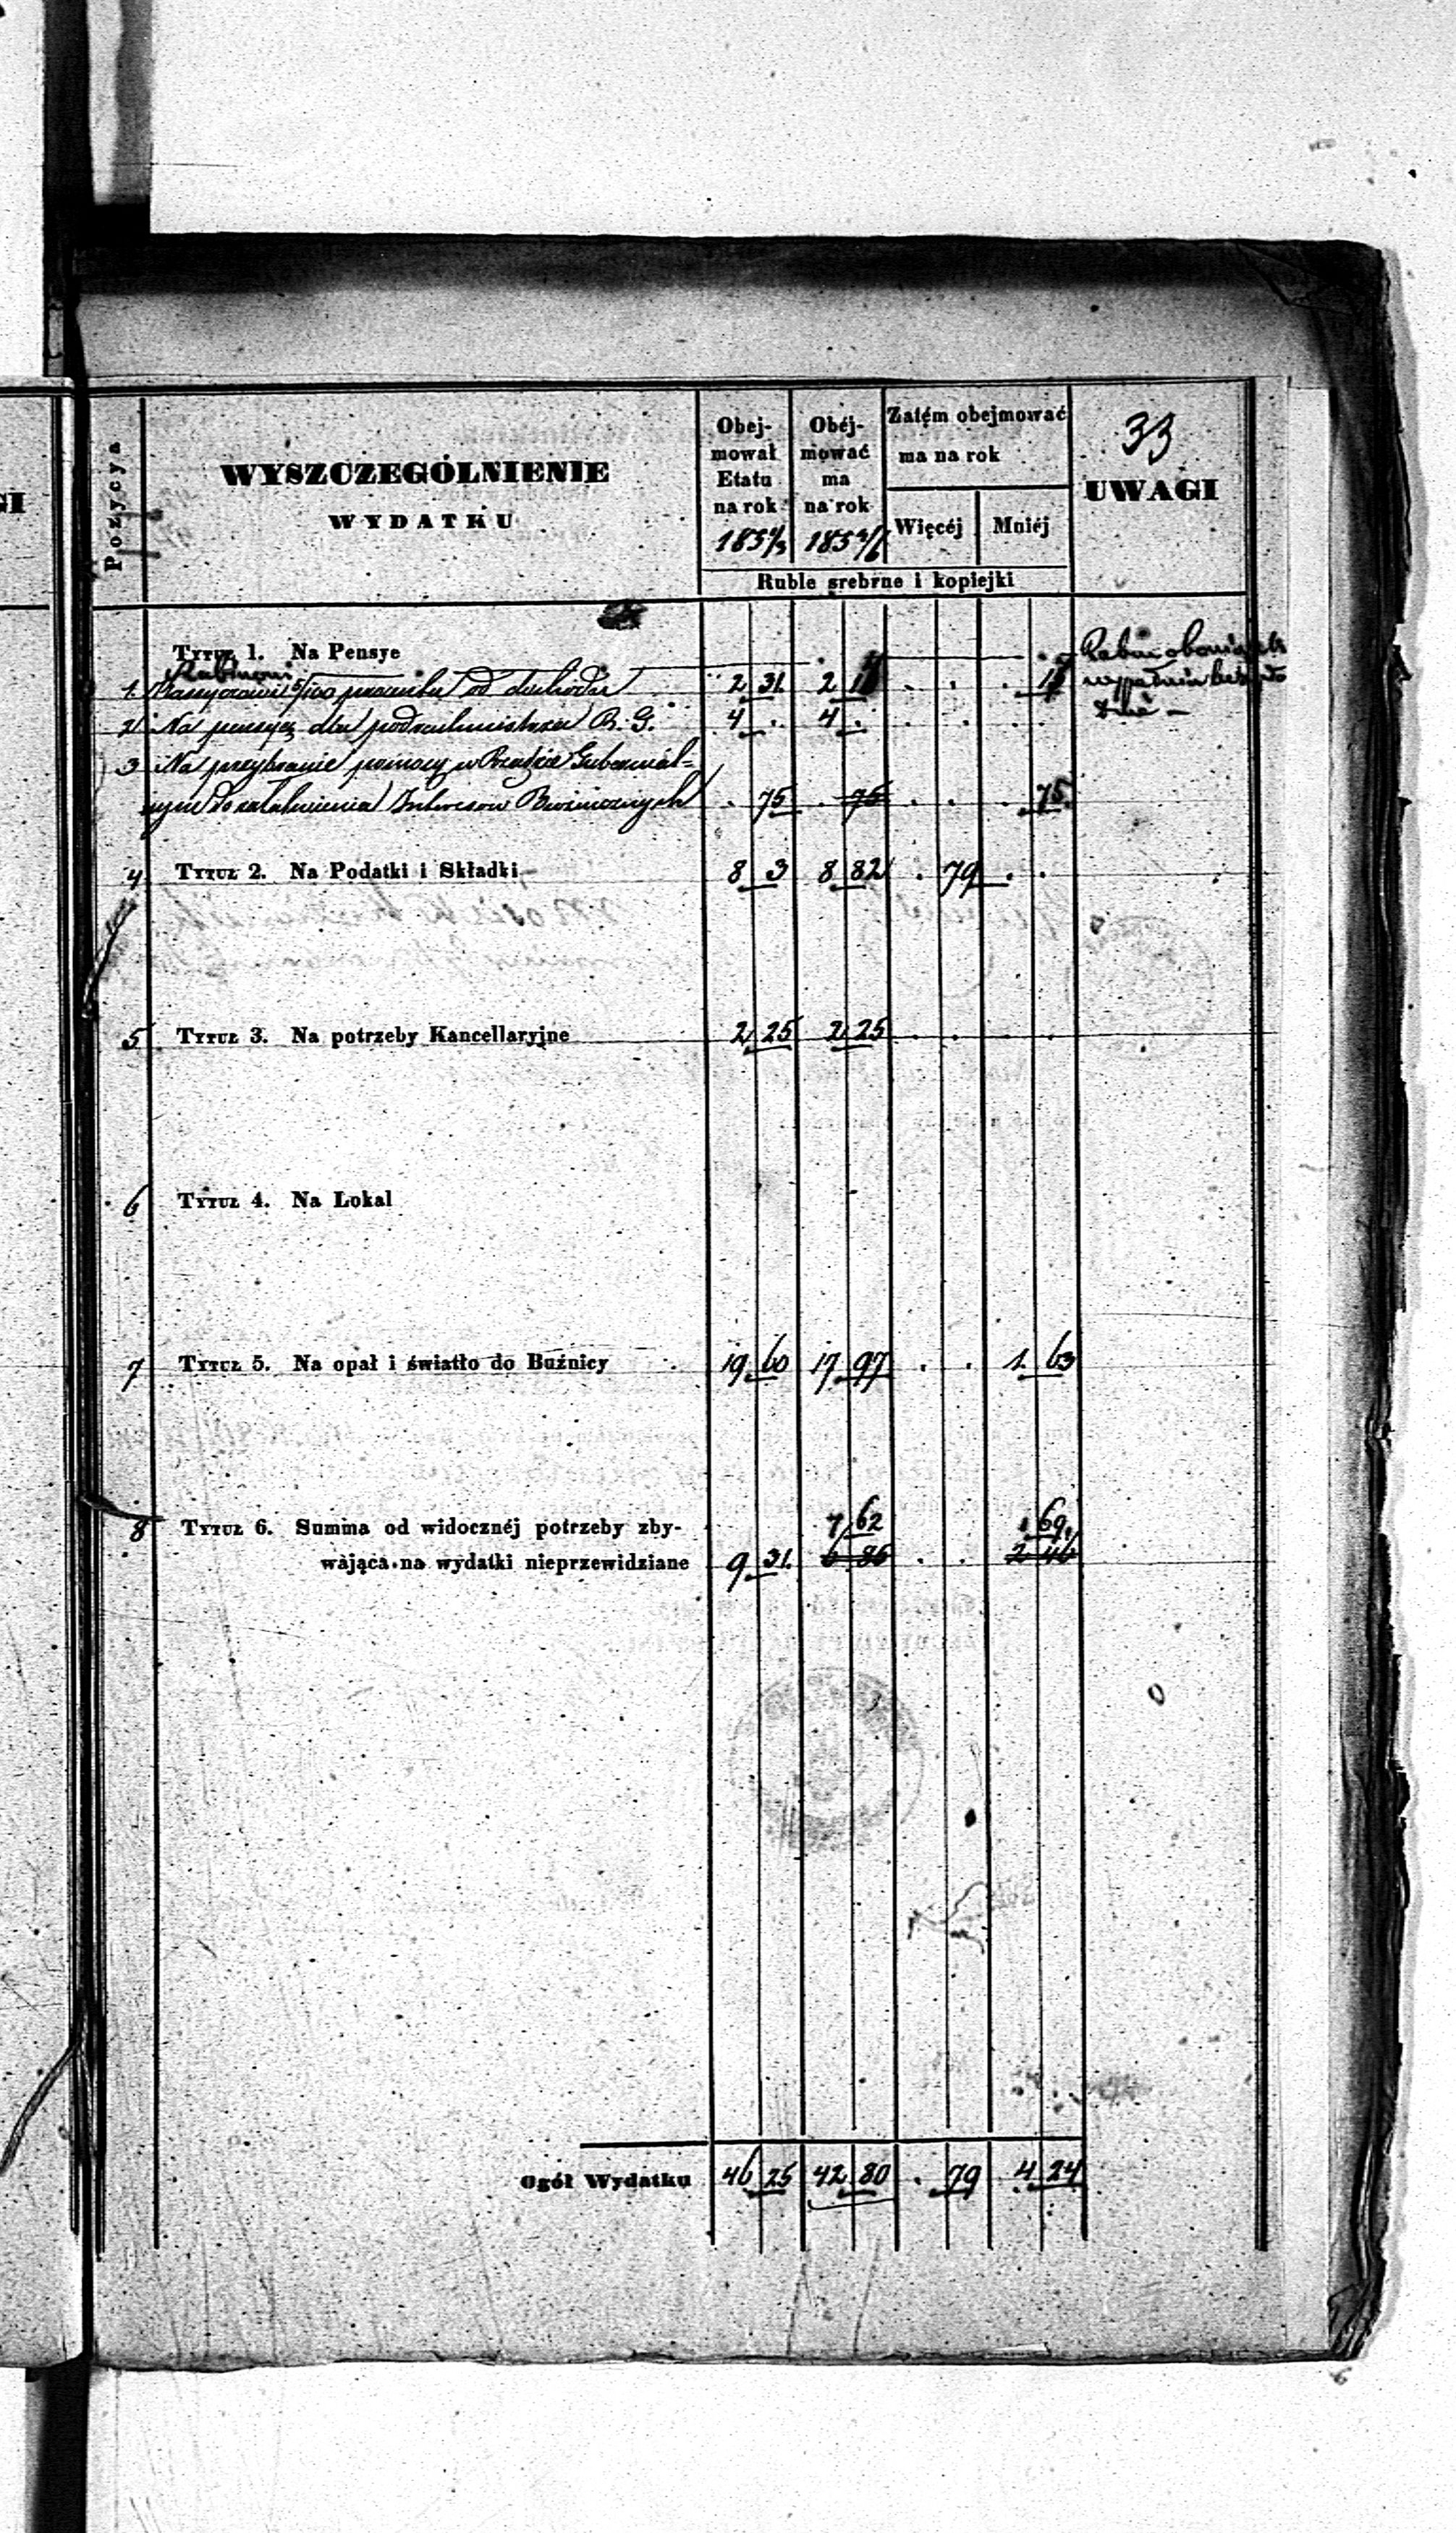 GI
33
Pozycya
WYSZCZEGÓLNIENIE
WYDATKU
Obej-
mował
Etatu
na rok
Obéj-
mować
ma
na rok
Zatém obejmować
ma na rok
Więcéj Mniéj
UWAGI
Ruble srebrne i kopiejki
Tytuł 1. Na Pensye
Rabinowi
1. Kassyerowi 5/100 procentu od dochodu 2 31 2
Rabin obowiązek
2 Na pensyę dla podrachmistrza R. G. 4 . 4 .
3 Na przybranie pomocy w Rządzie Gubernial-
nym do załatwienia Interesów Bożniczych . 75 . 75 . . . 75
4 Tytuł 2. Na Podatki i Składki 8 3 8 82 . 79 . .
5 Tytuł 3. Na potrzeby Kancellaryjne 2 25 2 25 . . . .
6 Tytuł 4. Na Lokal
7 Tytuł 5. Na opał i światło do Buźnicy 19 60 17 97 . . 1 63
8 Tytuł 6. Summa od widocznéj potrzeby zby- 7 62 1 69
wająca na wydatki nieprzewidziane 9 31 6 86 . . 2 46
Ogół Wydatku 46 25 42 80 . 79 4 24